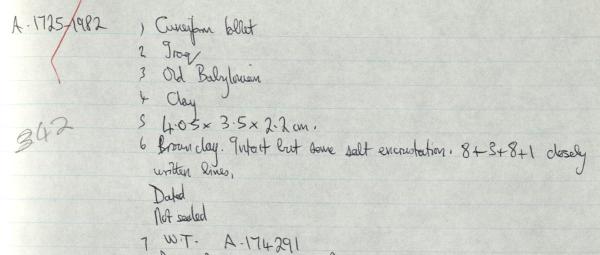 A.1725-1982 1 Cuneiform tablet
2 Iraq
3 Old Babylonian
4 Clay
5 4.05 x 3.5 x 2.2 cm.
342 6 Brown clay. Intact but some salt encrustation. 8+3+8+1 closely
written lines.
Dated
Not sealed
7 W.T. A-174291